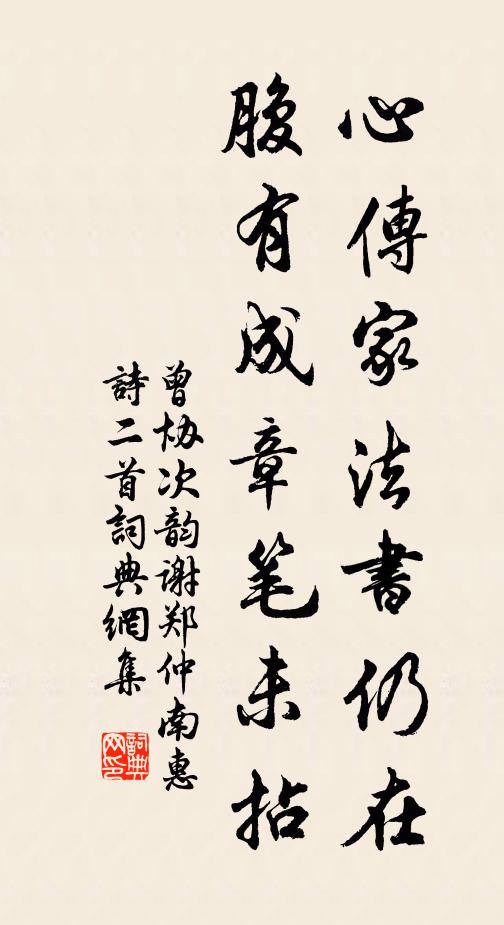 心傳家法書仍在
腹有成章笔未拈
曾协次韵谢郑仲南惠
詩二首詞典網集
詞典网印